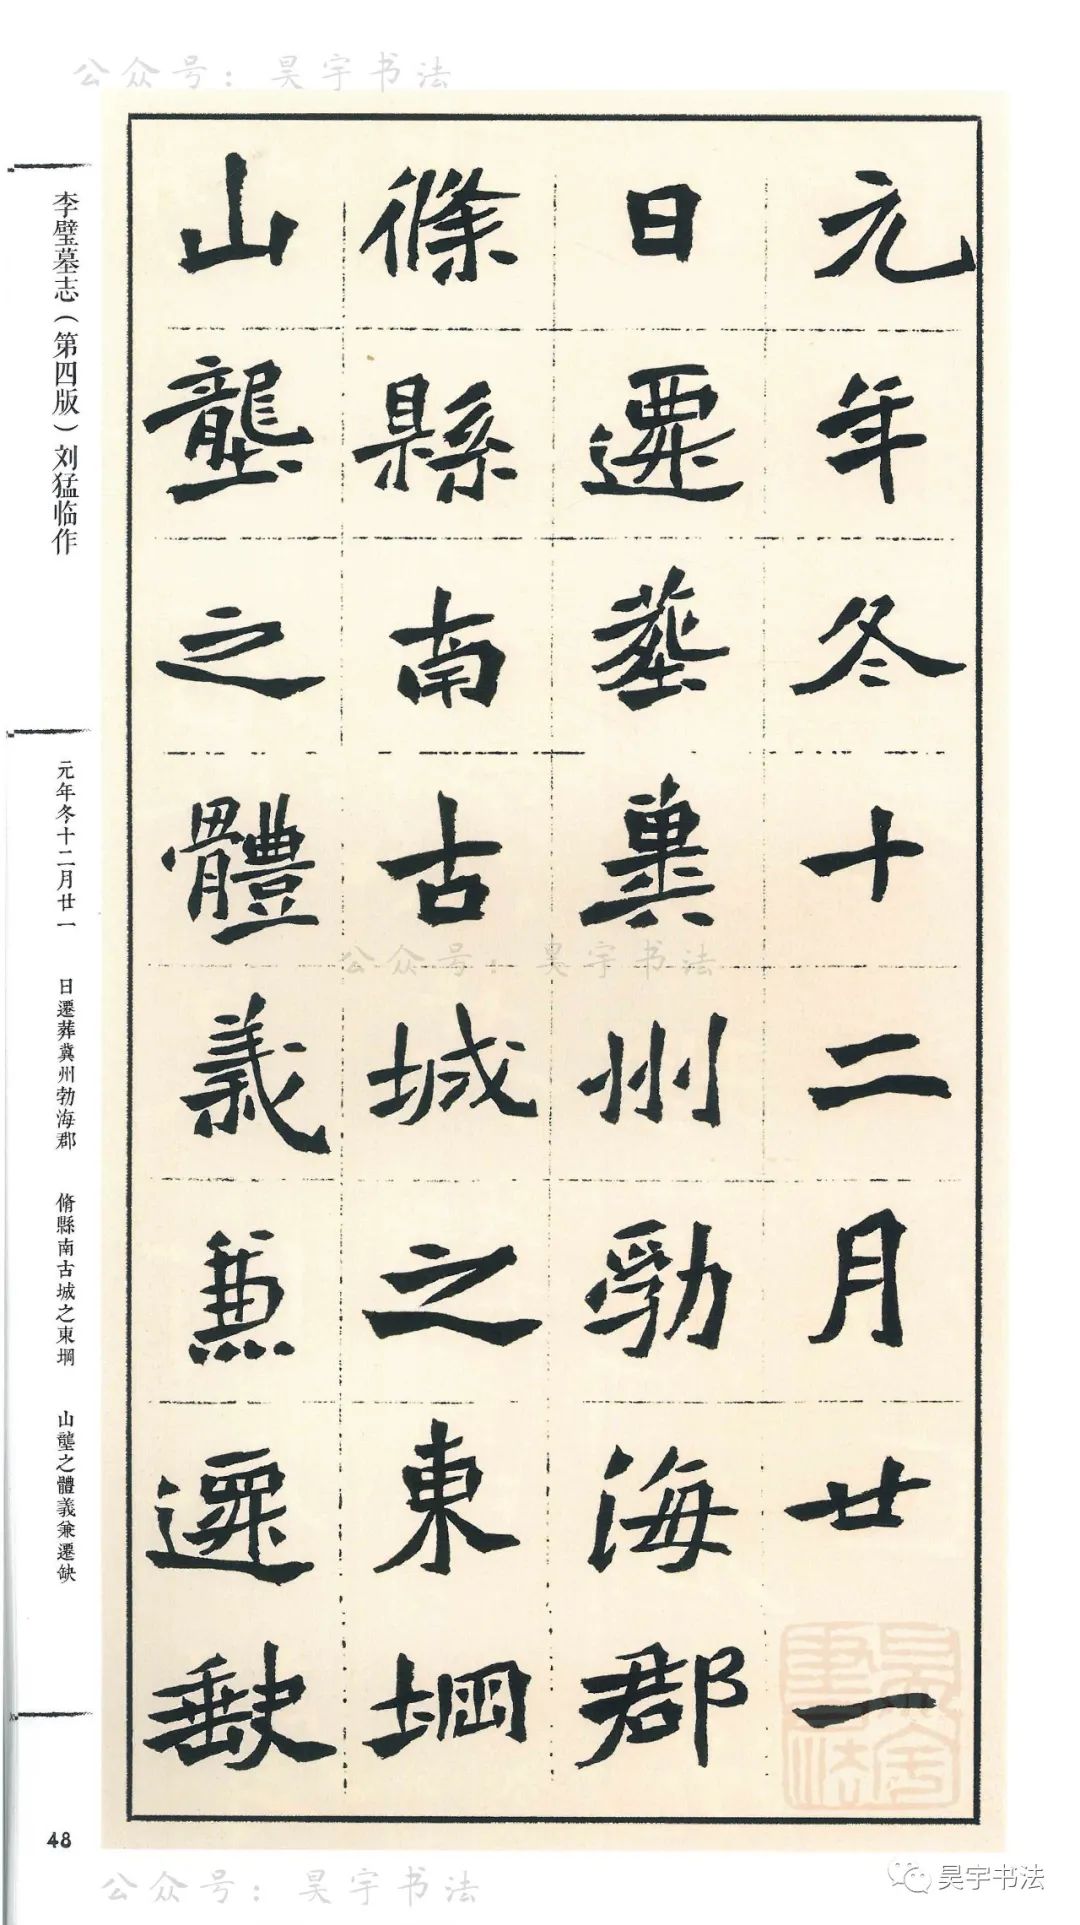 公众号：昊宇书法
元年冬十二月廿一
日遷葬冀州勃海郡
脩縣南古城之東堈
山壟之體義兼遷缺
李璧墓志（第四版）刘猛临作
元年冬十二月廿一
日遷葬冀州勃海郡
脩縣南古城之東堈
山壟之體義兼遷缺
公众号：昊宇书法
48
公众号：昊宇书法
昊宇书法
昊宇书法